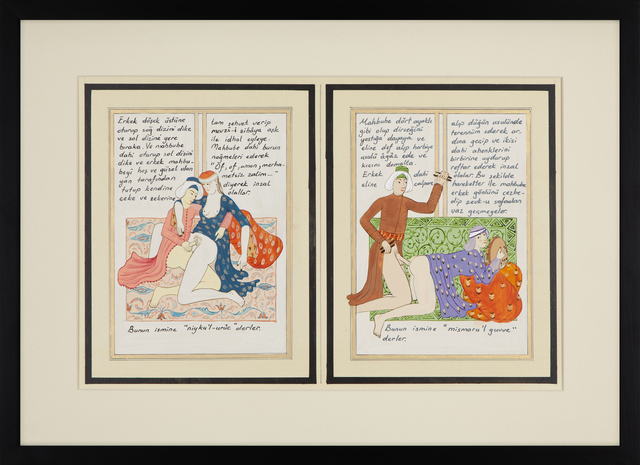 Erkek döşek üstüne
oturup sağ dizini dike
ve sol dizini yere
bıraka. Ve mahbube
dahi oturup sol dizini
dike ve erkek mahbu-
beyi hoş ve güzel olan
yan tarafından
tutup kendine
çeke ve zekerine
tam şehvet verip
mevzi-i sibliye aşk
ile idhal eyleye.
Mahbube dahi burun
nağmeleri ederek
"Of, of, aman, merha-
metsiz zalim..."
diyerek inzal
olallar.
Bunun ismine "niykü'l-urûc" derler.
Mahbube dört ayaklı
gibi olup dirseğini
yastığa dayaya ve
eline def alıp harbiye
usulü âğâz ede ve
kıçını domalta.
Erkek dahi
eline çalpare
alıp düğün usulünde
terennüm ederek ar-
dına geçip ve ikisi
dahi ahenklerini
birbirine uydurup
reftar ederek inzal
olalar. Bu şekilde
hareketler ile mahbube
erkek gönlünü cezbe-
dip zevk-u safadan
vaz geçmeyeler.
Bunun ismine "mismarü'l guvve"
derler.